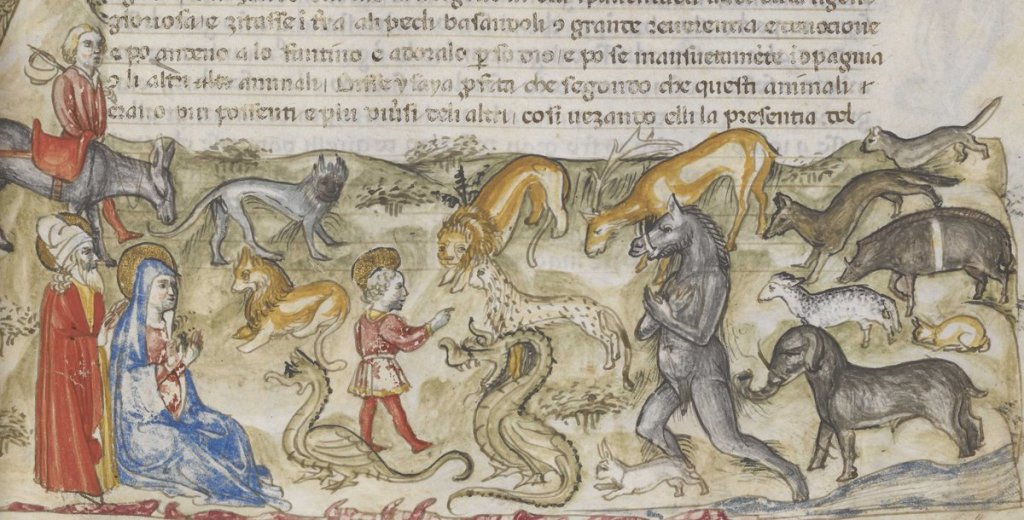 gloriosa, e zitasse i tra, ali pedi basandoli o grante reuerentia e deuocione
e po andeno a lo fantino e adoralo p so dio, e po se mansuetamẽte i opagnia
o li altri animali, Disse ysaya pfeta che segondo che questi animali
erano piu possenti e piu deli altri, cosi uezando elli la presentia del